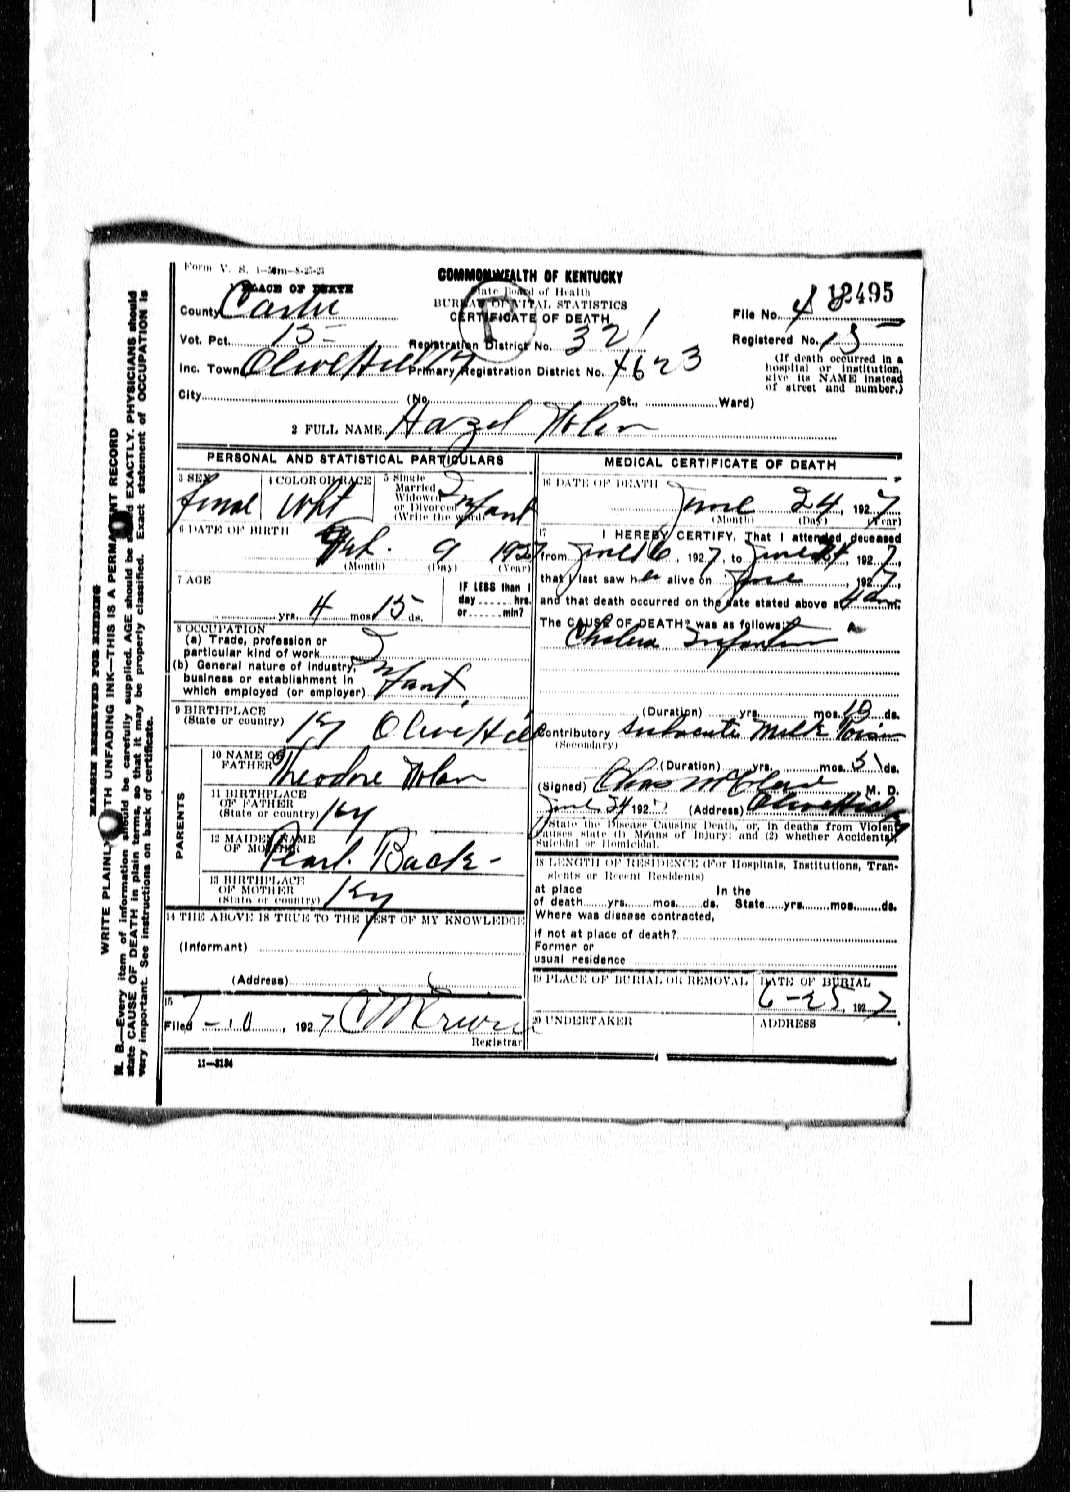 Form V. S. 1-50m-8-25-23
COMMONWEALTH OF KENTUCKY
PLACE OF DEATH
State Board of Health
BUREAU OF VITAL STATISTICS
CERTIFICATE OF DEATH
County Carter
File No. 48 12495
Vot. Pct. 15
Registration District No. 321
Registered No. 15
Inc. Town Olive Hill Ky
Primary Registration District No. 7623
(If death occurred in a hospital or institution, give its NAME instead of street and number.)
City (No. St., Ward)
2 FULL NAME Hazel Nolen
PERSONAL AND STATISTICAL PARTICULARS
3 SEX
femal
4 COLOR OR RACE
Wht
5 Single Married Widowed or Divorced (Write the word)
Infant
6 DATE OF BIRTH
Feb. 9 1927
(Month) (Day) (Year)
7 AGE
yrs. 4 mos. 15 ds.
IF LESS than 1 day hrs. or min?
8 OCCUPATION
(a) Trade, profession or particular kind of work
(b) General nature of industry, business or establishment in which employed (or employer)
Infant
9 BIRTHPLACE
(State or country) Ky Olive Hill
PARENTS
10 NAME OF FATHER Theodore Nolen
11 BIRTHPLACE OF FATHER (State or country) Ky
12 MAIDEN NAME OF MOTHER Pearl Back
13 BIRTHPLACE OF MOTHER (State or country) Ky
14 THE ABOVE IS TRUE TO THE BEST OF MY KNOWLEDGE
(Informant)
(Address)
15
Filed 7-10, 1927
Registrar
11-3184
MEDICAL CERTIFICATE OF DEATH
16 DATE OF DEATH
June 24, 1927
(Month) (Day) (Year)
17
I HEREBY CERTIFY, That I attended deceased
from June 16, 1927, to June 24, 1927,
that I last saw her alive on June, 1927,
and that death occurred on the date stated above at 4 am.
The CAUSE OF DEATH* was as follows:
Cholera Infantum
(Duration) yrs. mos. 10 ds.
Contributory Subacute Milk Poison
(Secondary)
(Duration) yrs. mos. 5 ds.
(Signed) Chas M, M. D.
June 24 192 (Address) Olive Hill Ky
*State the Disease Causing Death, or, in deaths from Violent Causes state (1) Means of Injury; and (2) whether Accidental, Suicidal or Homicidal.
18 LENGTH OF RESIDENCE (For Hospitals, Institutions, Transients or Recent Residents)
at place of death yrs. mos. ds. In the State yrs. mos. ds.
Where was disease contracted,
if not at place of death?
Former or
usual residence
19 PLACE OF BURIAL OR REMOVAL
DATE OF BURIAL
6-25, 1927
20 UNDERTAKER
ADDRESS
MARGIN RESERVED FOR BINDING
WRITE PLAINLY WITH UNFADING INK—THIS IS A PERMANENT RECORD
N. B.—Every item of information should be carefully supplied. AGE should be stated EXACTLY. PHYSICIANS should
state CAUSE OF DEATH in plain terms, so that it may be properly classified. Exact statement of OCCUPATION is
very important. See instructions on back of certificate.